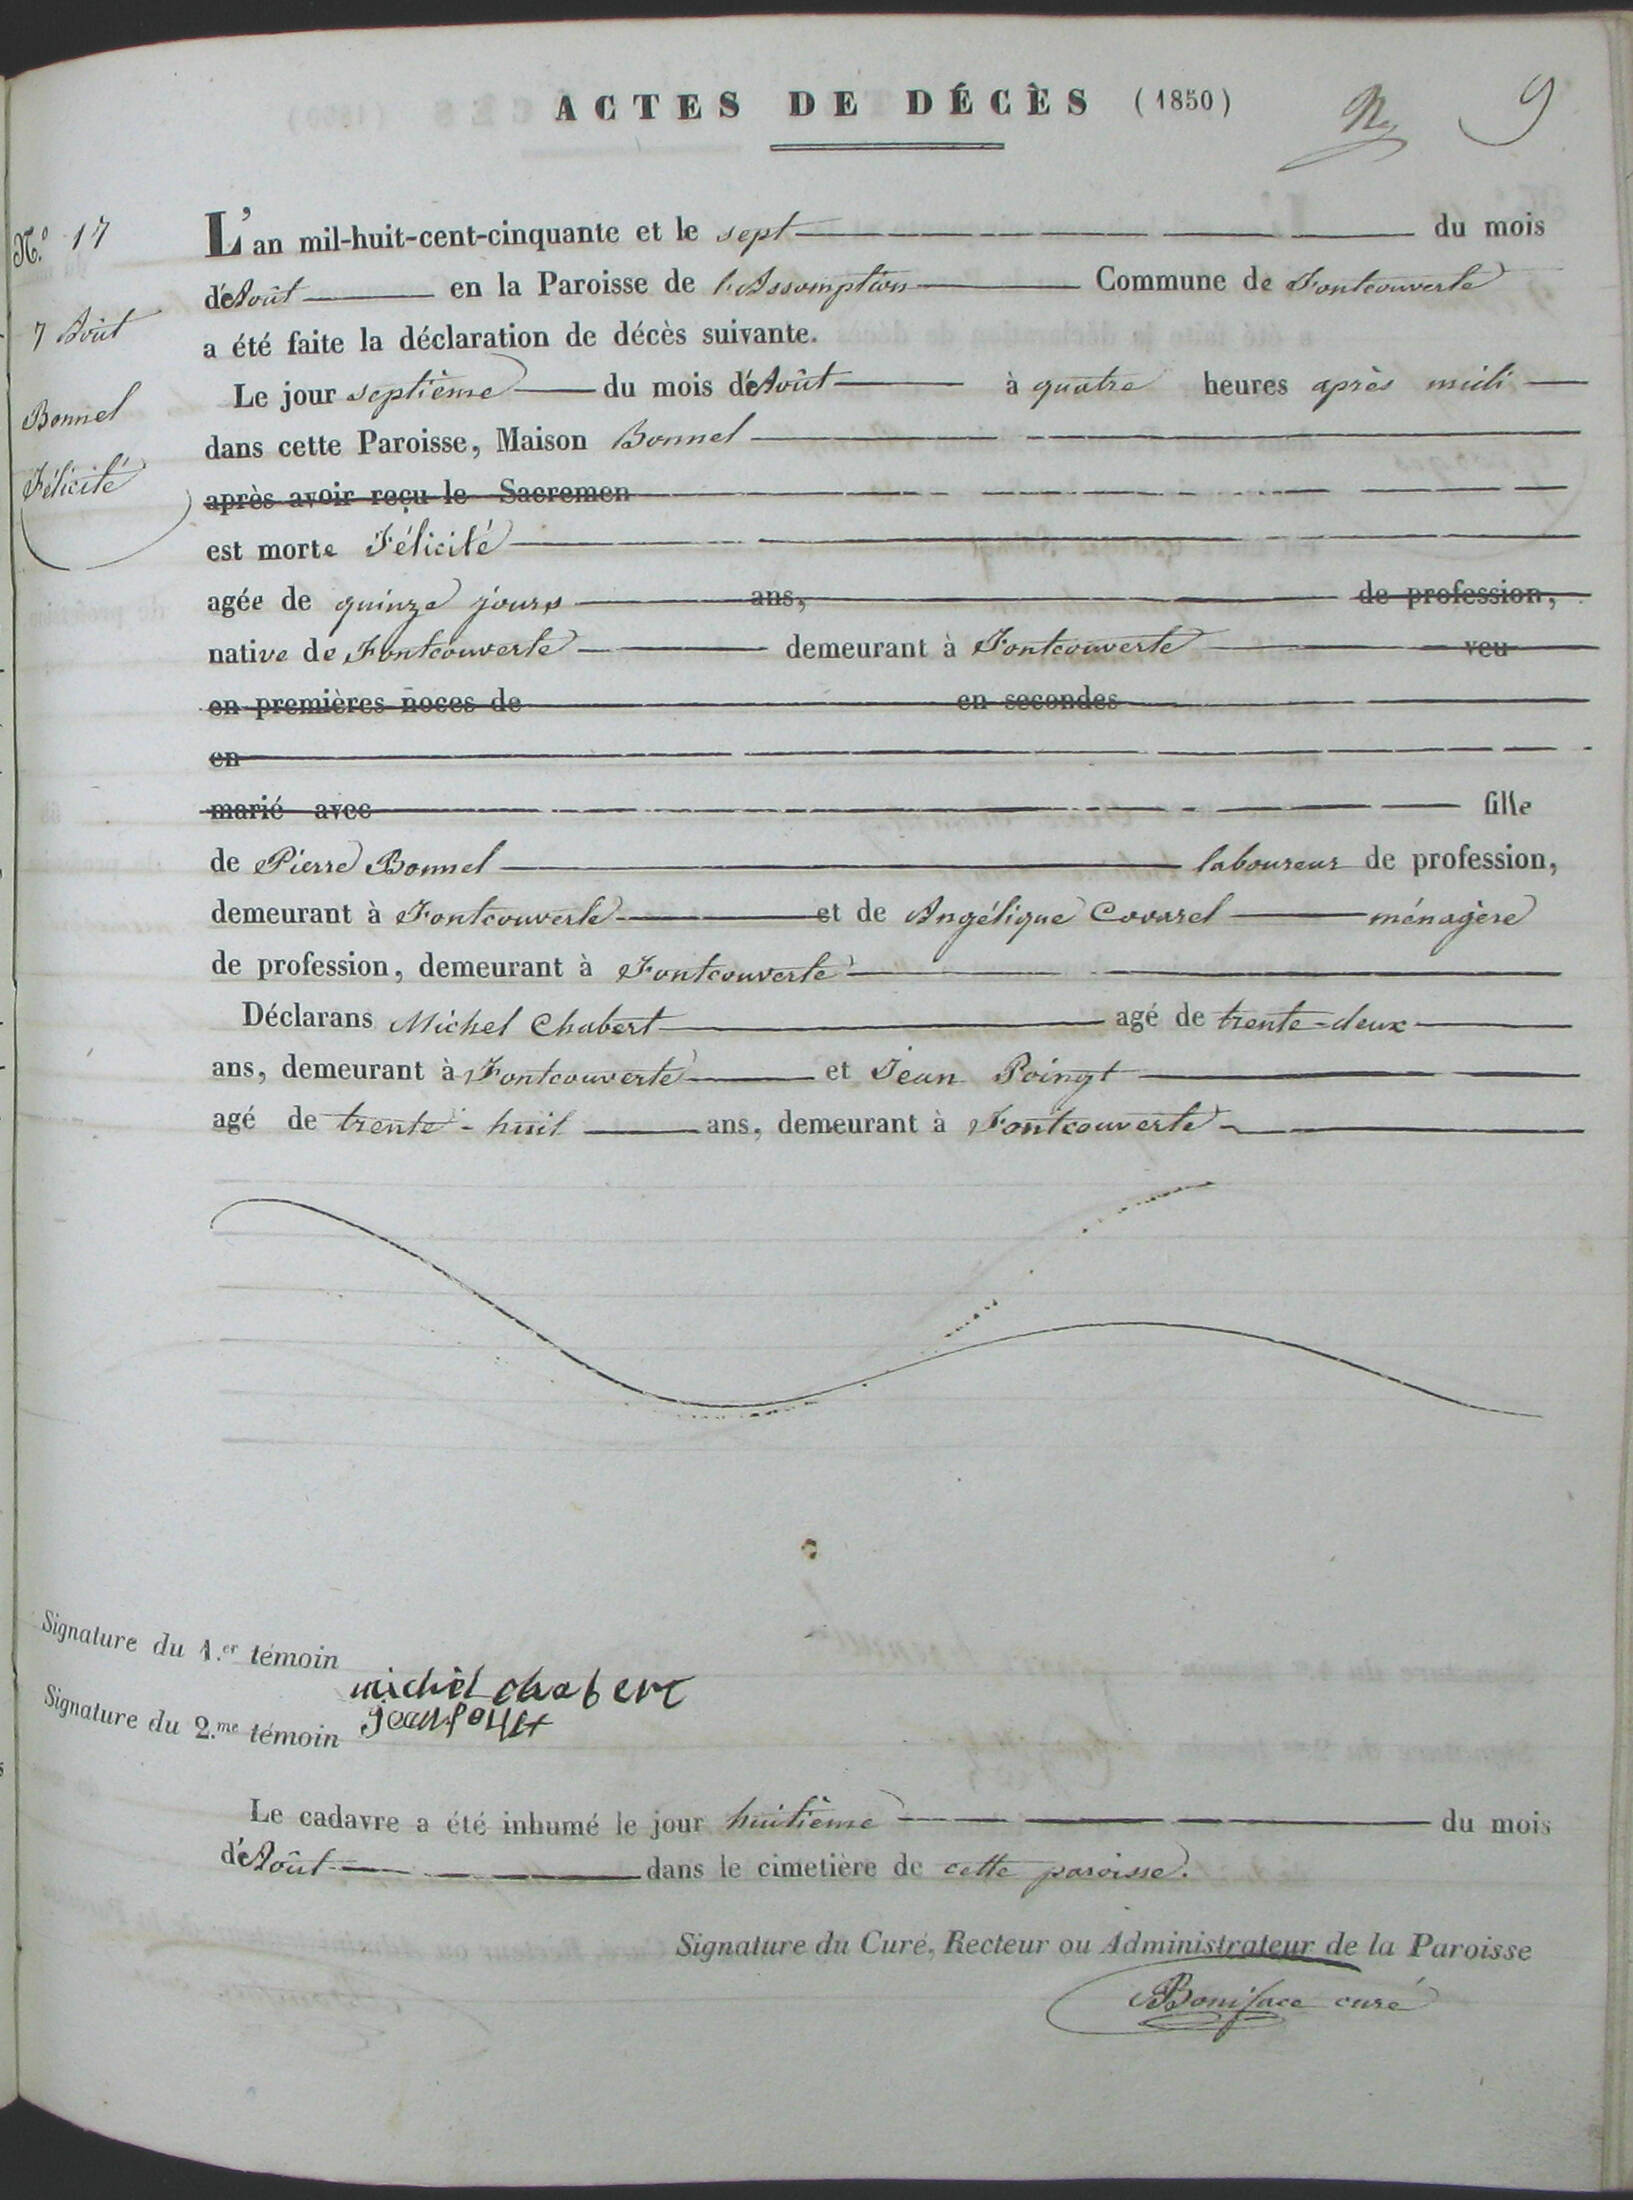 ACTES DE DÉCÈS (1850)
9
N.º 17
7 Août
Bonnel
Félicité
L'an mil-huit-cent-cinquante et le sept du mois
d'Août en la Paroisse de l'Assomption Commune de Fontcouverte
a été faite la déclaration de décès suivante.
Le jour septième du mois d'Août à quatre heures après midi
dans cette Paroisse, Maison Bonnel
après avoir reçu le Sacremen
est morte Félicité
agée de quinze jours ans, de profession,
native de Fontcouverte demeurant à Fontcouverte veu
en premières noces de en secondes
en
marié avec fille
de Pierre Bonnel laboureur de profession,
demeurant à Fontcouverte et de Angélique Covarel ménagère
de profession, demeurant à Fontcouverte
Déclarans Michel Chabert agé de trente-deux
ans, demeurant à Fontcouverte et Jean Poingt
agé de trente-huit ans, demeurant à Fontcouverte
Signature du 1.er témoin
michel chabert
Signature du 2.me témoin
Le cadavre a été inhumé le jour huitième du mois
d'Août dans le cimetière de cette paroisse.
Signature du Curé, Recteur ou Administrateur de la Paroisse
Boniface curé